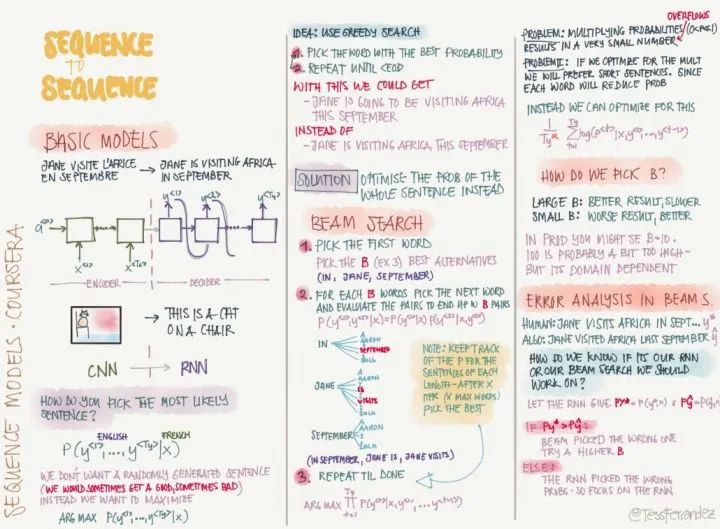 SEQUENCE
TO
SEQUENCE
BASIC MODELS
JANE VISITE L'AFRICE
EN SEPTEMBRE
JANE IS VISITING AFRICA
IN SEPTEMBER
y<1>
y<2>
y<Ty>
a<0>
x<1>
x<Tx>
ENCODER
DECODER
THIS IS A CAT
ON A CHAIR
CNN
RNN
HOW DO YOU PICK THE MOST LIKELY
SENTENCE?
ENGLISH
FRENCH
P(y<1>,...,y<Ty>|x)
WE DON'T WANT A RANDOMLY GENERATED SENTENCE
(WE WOULD SOMETIMES GET A GOOD, SOMETIMES BAD)
INSTEAD WE WANT TO MAXIMIZE
ARG MAX P(y<1>,...,y<Ty>|x)
SEQUENCE MODELS · COURSERA
IDEA: USE GREEDY SEARCH
1. PICK THE WORD WITH THE BEST PROBABILITY
2. REPEAT UNTIL <EOS>
WITH THIS WE COULD GET
- JANE IS GOING TO BE VISITING AFRICA
THIS SEPTEMBER
INSTEAD OF
- JANE IS VISITING AFRICA THIS SEPTEMBER
SOLUTION
OPTIMISE THE PROB OF THE
WHOLE SENTENCE INSTEAD
BEAM SEARCH
1. PICK THE FIRST WORD
PICK THE B (EX 3) BEST ALTERNATIVES
(IN, JANE, SEPTEMBER)
2. FOR EACH B WORDS PICK THE NEXT WORD
AND EVALUATE THE PAIRS TO END UP W B PAIRS
P(y<1>,y<2>|x)=P(y<1>|x) P(y<2>|x,y<1>)
IN
A
AARON
SEPTEMBER
ZULU
JANE
A
AARON
IS
VISITS
ZULU
SEPTEMBER
A
AARON
ZULU
NOTE: KEEP TRACK
OF THE P FOR THE
SENTENCES OF EACH
LENGTH - AFTER X
ITER (X MAX WORDS)
PICK THE BEST
(IN SEPTEMBER, JANE IS, JANE VISITS)
3. REPEAT TIL DONE
ARG MAX Ty ∏ t=1 P(y<t>|x,y<1>,...y<t-1>)
OVERFLOWS
PROBLEM: MULTIPLYING PROBABILITIES (0<P<1)
RESULTS IN A VERY SMALL NUMBER
PROBLEM II: IF WE OPTIMIZE FOR THE MULT
WE WILL PREFER SHORT SENTENCES. SINCE
EACH WORD WILL REDUCE PROB
INSTEAD WE CAN OPTIMIZE FOR THIS
1/Ty^α Ty ∑ t=1 log(P<t>|x,y<1>,...,y<t-1>)
HOW DO WE PICK B?
LARGE B: BETTER RESULT, SLOWER
SMALL B: WORSE RESULT, BETTER
IN PROD YOU MIGHT SE B=10.
100 IS PROBABLY A BIT TOO HIGH -
BUT ITS DOMAIN DEPENDENT
ERROR ANALYSIS IN BEAM S.
HUMAN: JANE VISITS AFRICA IN SEPT... y*
ALGO: JANE VISITED AFRICA LAST SEPTEMBER ŷ
HOW DO WE KNOW IF ITS OUR RNN
OR OUR BEAM SEARCH WE SHOULD
WORK ON?
IF Py* > Pŷ:
BEAM PICKED THE WRONG ONE
TRY A HIGHER B
ELSE:
THE RNN PICKED THE WRONG
PROBS - SO FOCUS ON THE RNN
@TessFerrandez